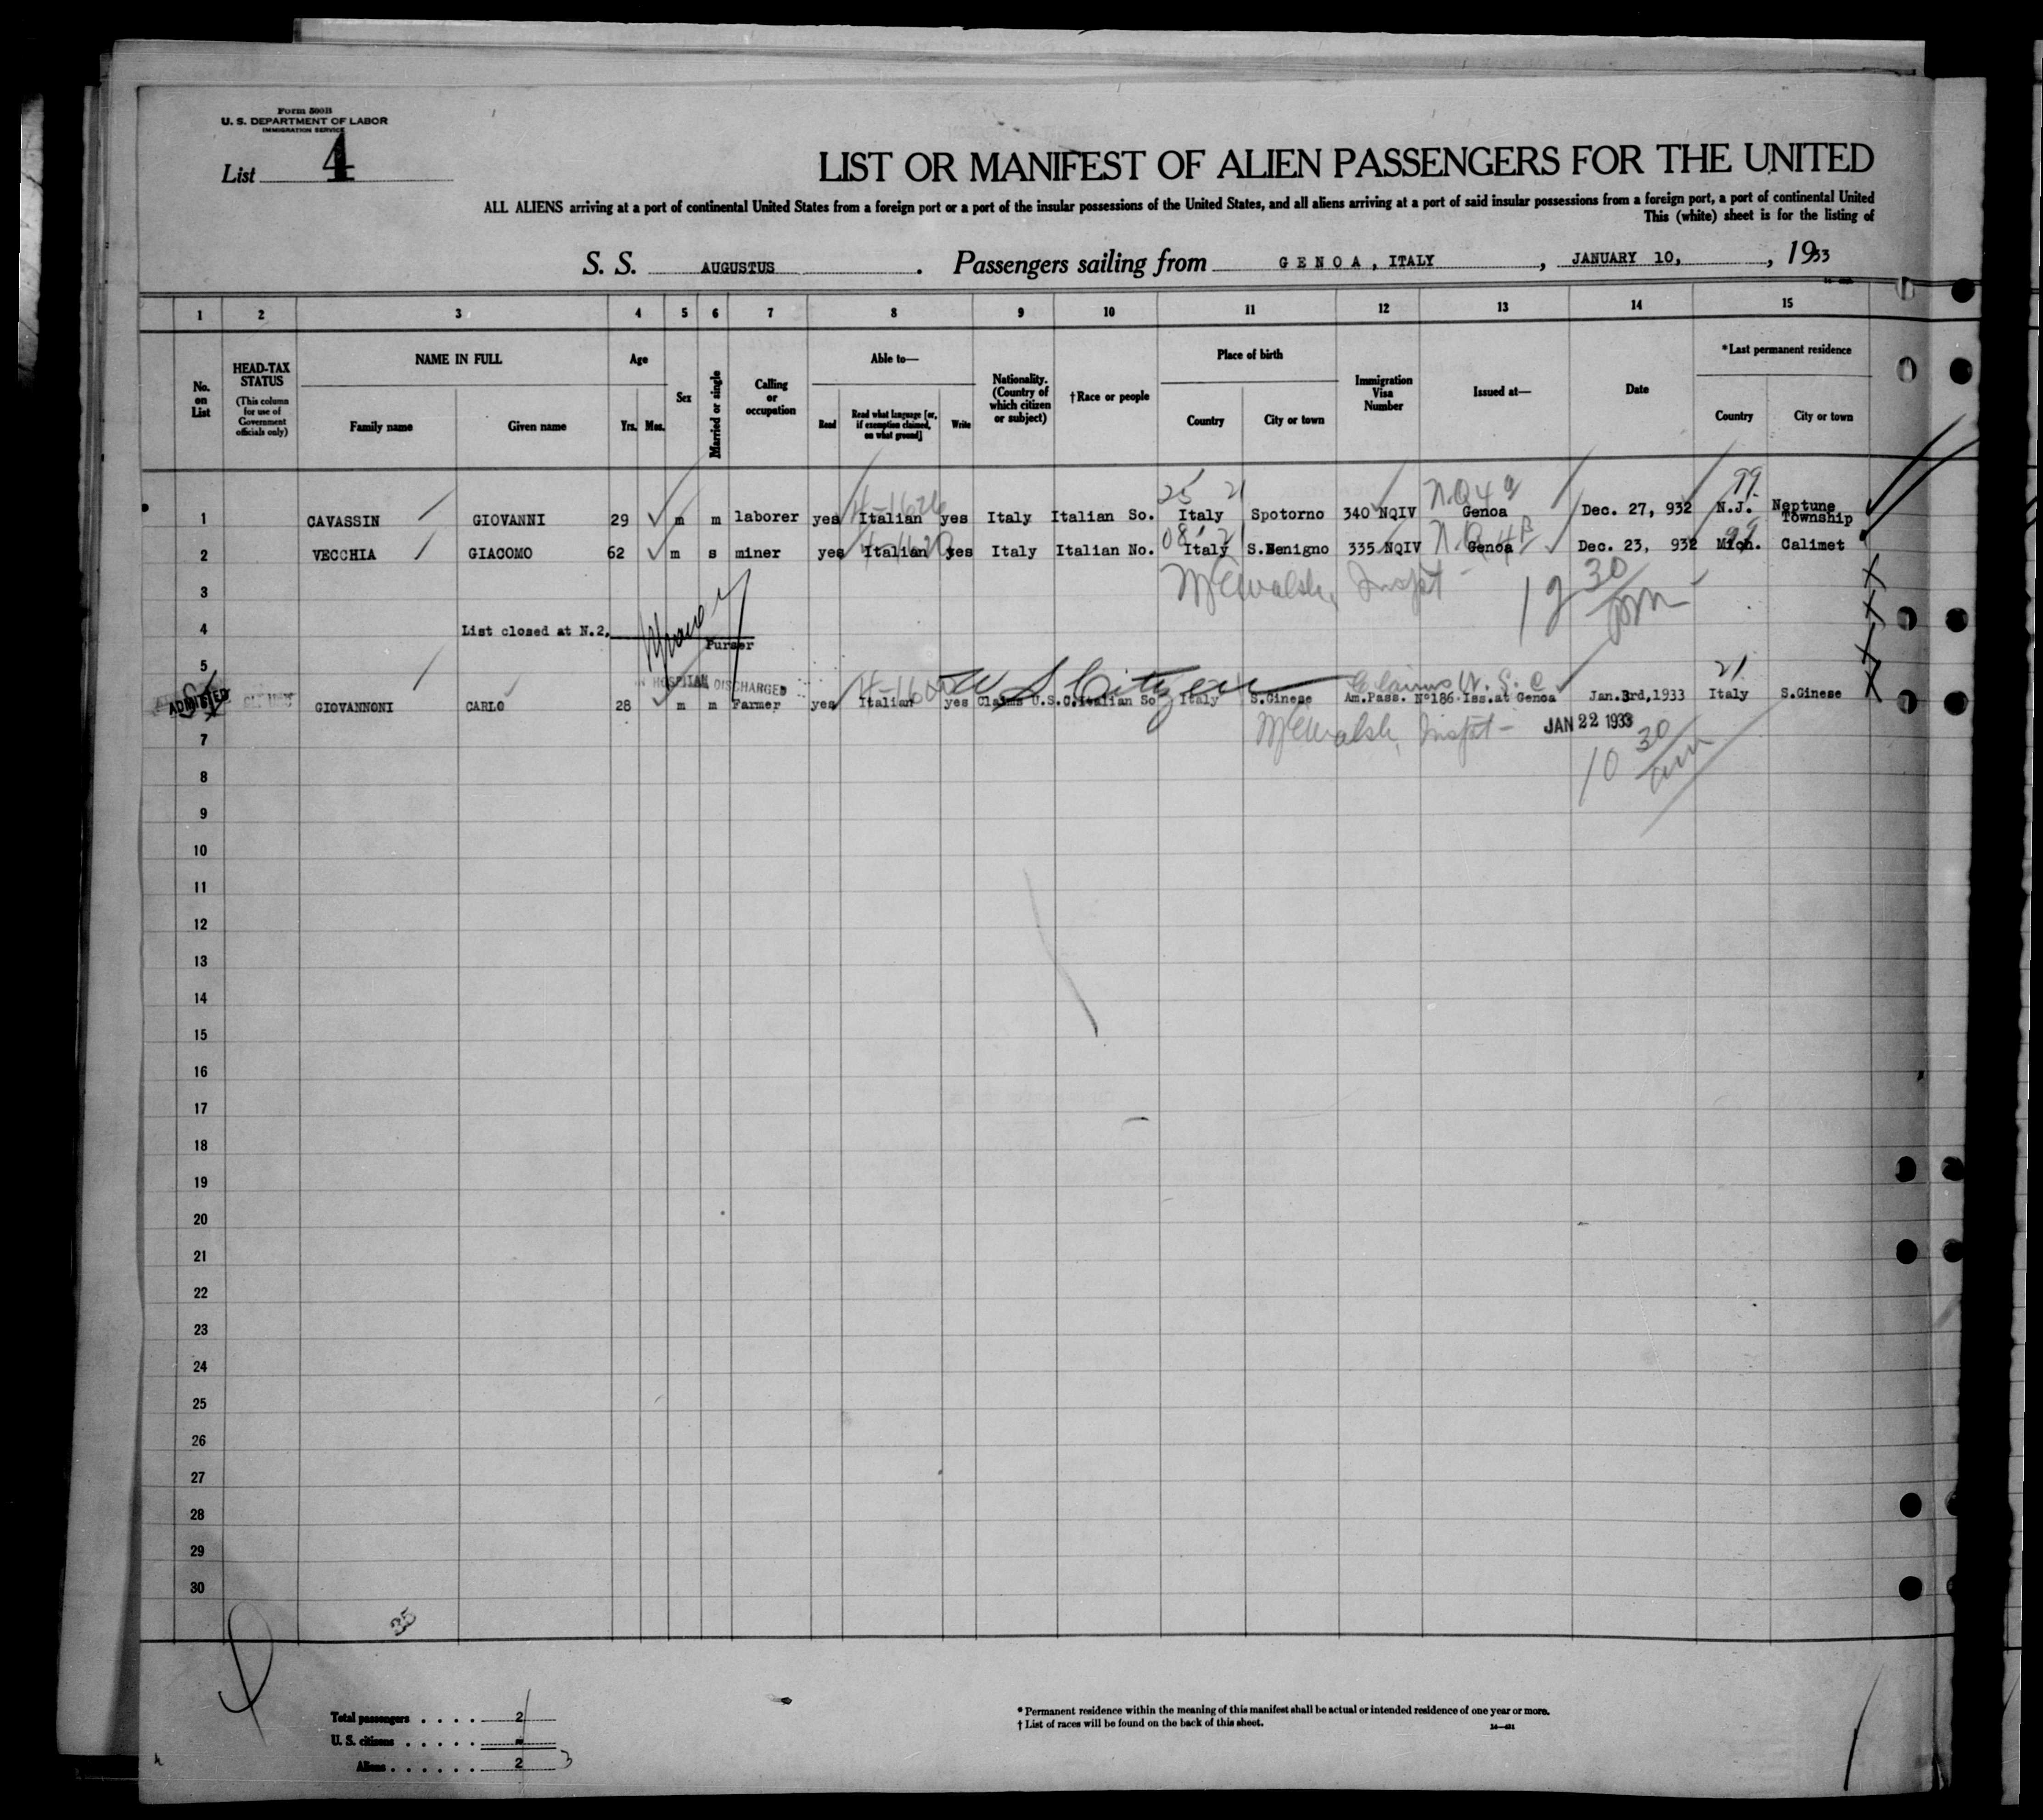 Form 500B
U. S. DEPARTMENT OF LABOR
IMMIGRATION SERVICE
List 4
LIST OR MANIFEST OF ALIEN PASSENGERS FOR THE UNITED
ALL ALIENS arriving at a port of continental United States from a foreign port or a port of the insular possessions of the United States, and all aliens arriving at a port of said insular possessions from a foreign port, a port of continental United
This (white) sheet is for the listing of
S. S. AUGUSTUS . Passengers sailing from GENOA, ITALY , JANUARY 10, , 1933
1 2 3 4 5 6 7 8 9 10 11 12 13 14 15
No. on List
HEAD-TAX STATUS (This column for use of Government officials only)
NAME IN FULL
Family name Given name
Age
Yrs. Mos.
Sex
Married or single
Calling or occupation
Able to—
Read Read what language [or, if exemption claimed, on what ground] Write
Nationality. (Country of which citizen or subject)
†Race or people
Place of birth
Country City or town
Immigration Visa Number
Issued at—
Date
*Last permanent residence
Country City or town
25 21 N.Q 4 a 99
1 CAVASSIN GIOVANNI 29 m m laborer yes Italian yes Italy Italian So. Italy Spotorno 340 NQIV Genoa Dec. 27, 932 N.J. Neptune Township
2 VECCHIA GIACOMO 62 m s miner yes Italian yes Italy Italian No. Italy S.Benigno 335 NQIV Genoa Dec. 23, 932 Mich. Calimet
3
Inspt 12 30 pm
4 List closed at N.2,
Purser
5
IN HOSPITAL DISCHARGED
U S Citizen
Claims U.S.C. 21
ADMITTED
6 GIOVANNONI CARLO 28 m m Farmer yes Italian yes Claims U.S.C. Italian So Italy S.Ginese Am.Pass. Nº186 Iss.at Genoa Jan.3rd,1933 Italy S.Ginese
Inspt JAN 22 1933
10 30 am
7
8
9
10
11
12
13
14
15
16
17
18
19
20
21
22
23
24
25
26
27
28
29
30
35
Total passengers . . . . . 2
U. S. citizens . . . . . -
Aliens . . . . . . 2 3
* Permanent residence within the meaning of this manifest shall be actual or intended residence of one year or more.
† List of races will be found on the back of this sheet.